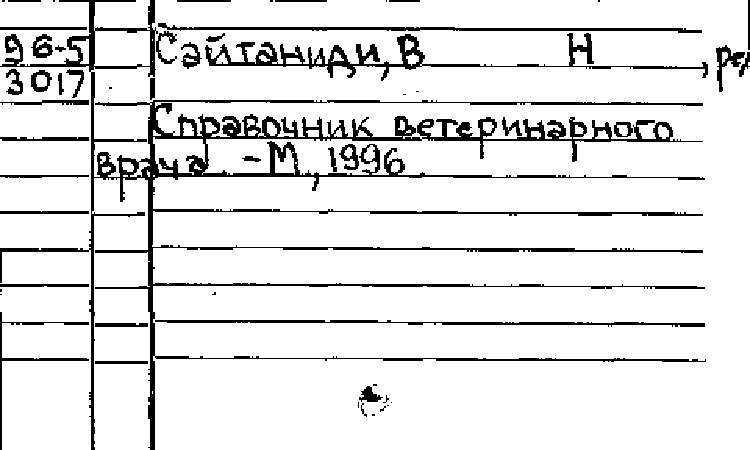 96-5 Сайтаниди, В Н
3017 , ре
Справочник ветеринарного
врача. - М., 1996